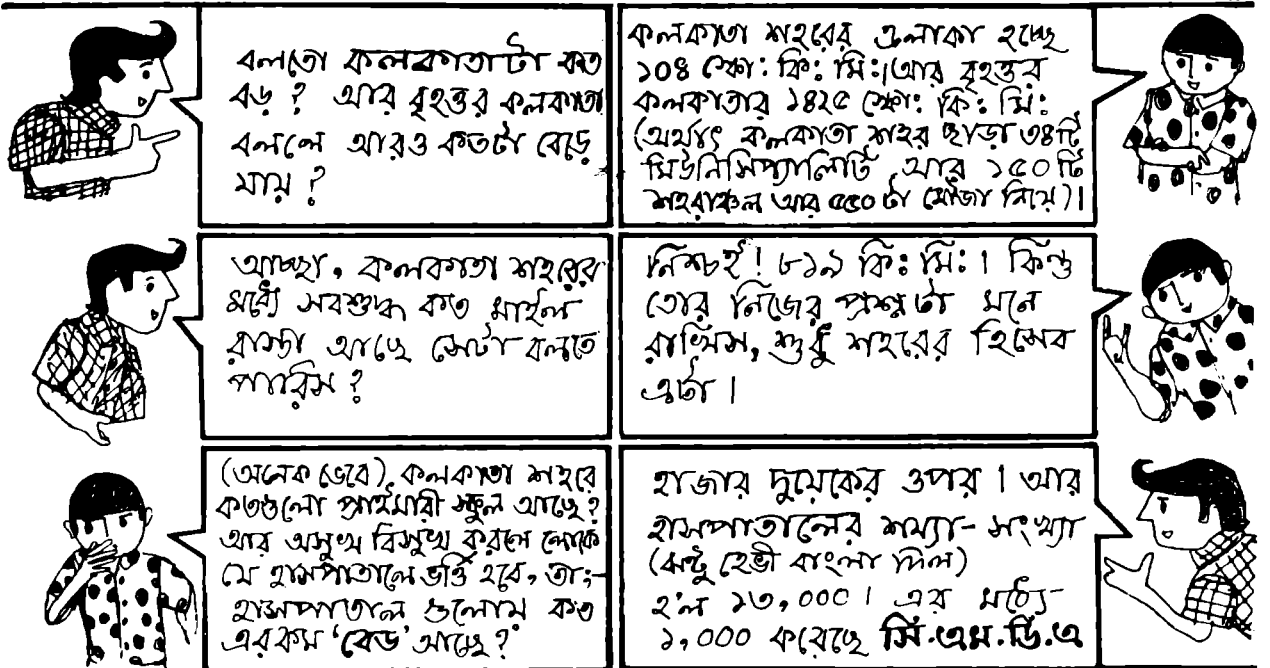 বলতো কলকাতাটা কত
বড় ? আর বৃহত্তর কলকাতা
বললে আরও কতটা বেড়ে
যায় ?
কলকাতা শহরের এলাকা হচ্ছে
১০৪ স্কো: কি: মি:। আর বৃহত্তর
কলকাতার ১৪২৫ স্কো: কি: মি:
(অর্থাৎ কলকাতা শহর ছাড়া ৩৪টি
মিউনিসিপ্যালিটি আর ১৫০টি
শহরাঞ্চল আর ৫৫০টা মৌজা নিয়ে)।
আচ্ছা, কলকাতা শহরের
মধ্যে সবশুদ্ধ কত মাইল
রাস্তা আছে সেটা বলতে
পারিস ?
নিশ্চই ! ৮১৯ কি: মি: । কিন্তু
তোর নিজের প্রশ্নটা মনে
রাখিস, শুধু শহরের হিসেব
এটা ।
(অনেক ভেবে) কলকাতা শহরে
কতগুলো প্রাইমারী স্কুল আছে ?
আর অসুখ বিসুখ করলে লোকে
যে হাসপাতালে ভর্ত্তি হবে, তা:-
হাসপাতাল গুলোয় কত
এরকম ‘বেড’ আছে ?
হাজার দুয়েকের ওপর । আর
হাসপাতালের শয্যা-সংখ্যা
(ঝন্টু হেভী বাংলা দিল)
হ'ল ১৩,০০০ । এর মধ্যে-
১,০০০ করেছে সি.এম.ডি.এ